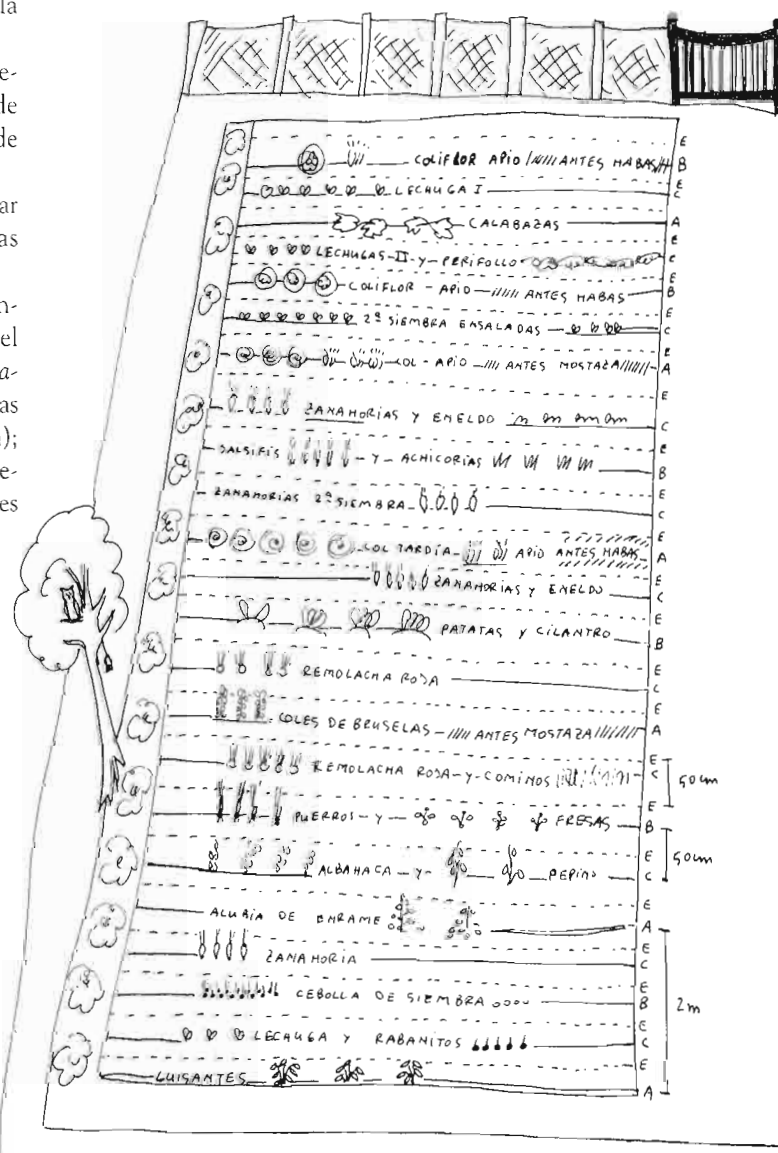 la
e-
de
de
ar
as
n-
el
a-
as
);
e-
es
E
COLIFLOR APIO ANTES HABAS B
E
LECHUGA I C
CALABAZAS A
E
LECHUGAS-II-Y-PERIFOLLO C
E
COLIFLOR - APIO ANTES HABAS B
E
2ª SIEMBRA ENSALADAS C
E
COL - APIO ANTES MOSTAZA A
E
ZANAHORIAS Y ENELDO C
E
SALSIFIS - Y - ACHICORIAS B
E
ZANAHORIAS 2ª SIEMBRA C
E
COL TARDÍA APIO ANTES HABAS A
E
ZANAHORIAS Y ENELDO C
E
PATATAS Y CILANTRO B
E
REMOLACHA ROJA C
E
COLES DE BRUSELAS ANTES MOSTAZA A
E
REMOLACHA ROJA-Y-COMINOS C 50 cm
E
PUERROS-Y- FRESAS B
E
ALBAHACA -Y- PEPINO C 50 cm
E
ALUBIA DE ENRAME A
E
ZANAHORIA C
E
CEBOLLA DE SIEMBRA B 2 m
E
LECHUGA Y RABANITOS C
E
GUISANTES A